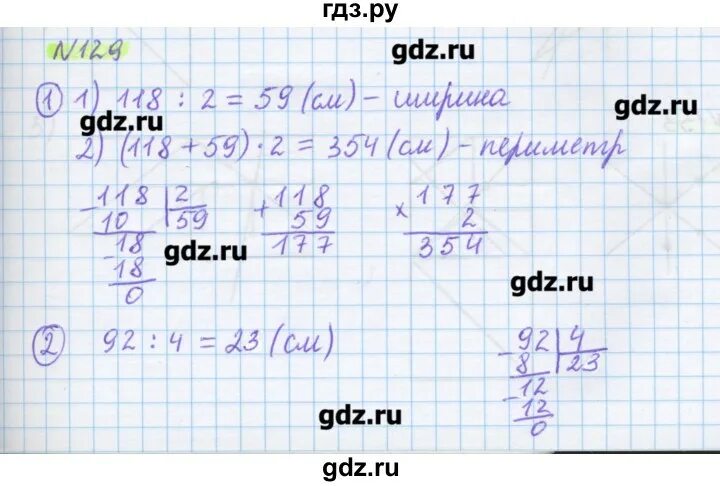 гдз.ру
N129
gdz.ru
① 1) 118 : 2 = 59 (см) – ширина
gdz.ru
2) (118 + 59) · 2 = 354 (см) – периметр
−118 | 2
10 | 59
−18
18
0
+118
59
177
×177
2
354
gdz.ru
gdz.ru
② 92 : 4 = 23 (см)
−92 | 4
8 | 23
−12
12
0
gdz.ru
gdz.ru